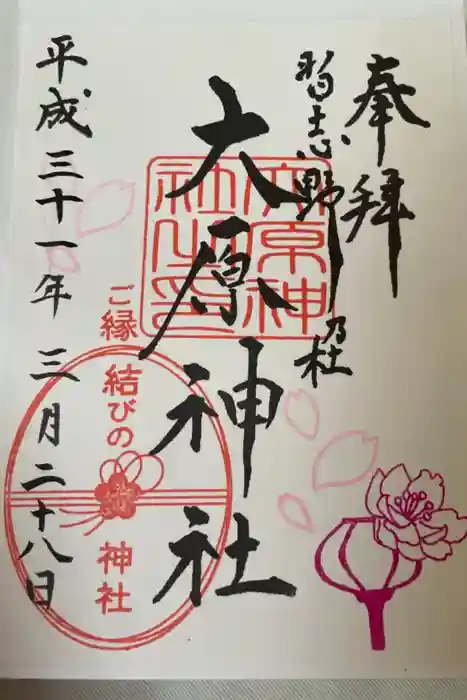 奉拝
習志野乃杜
大原神社
大原神社之印
平成三十一年三月二十八日
ご縁結びの神社